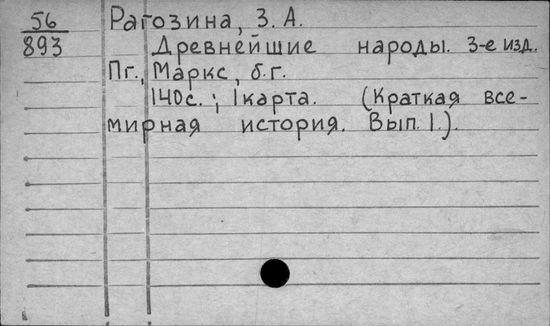 56 Рагозина, З. А.
893 Древнейшие народы. 3-е изд.
Пг., Маркс, б.г.
140с.; 1 карта. (Краткая все-
мирная история. Вып. 1.).